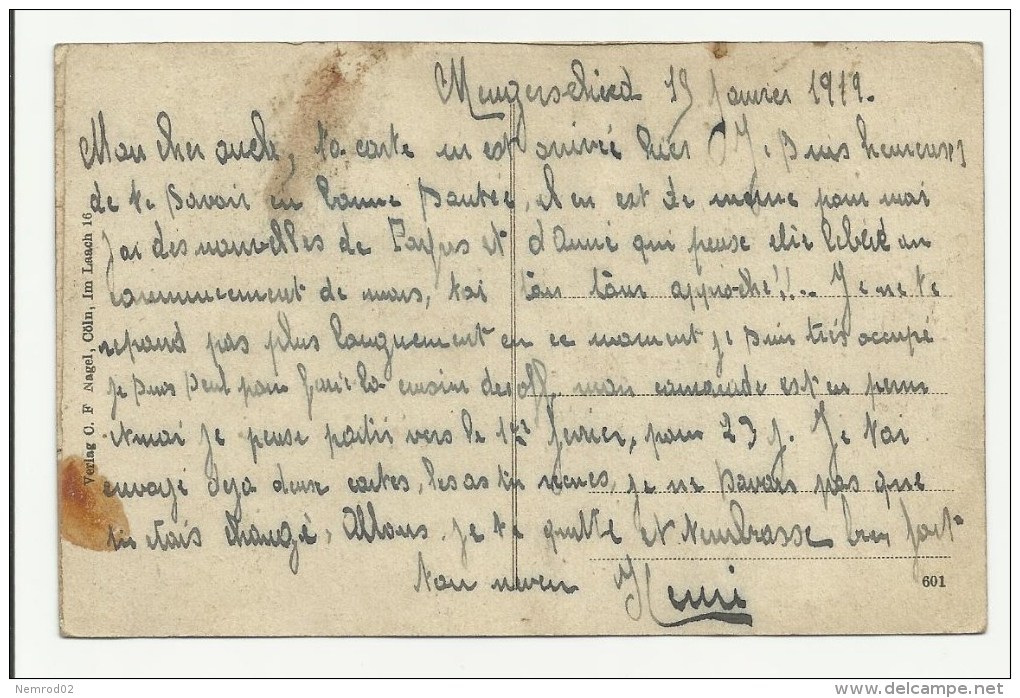 Mengerschied 15 Janvier 1919.
Mon cher oncle, ta carte m est arrivée hier Je suis heureux
de te savoir en bonne santée, il en est de même pour moi
J'ai des nouvelles de Parfus et d'Anné qui pense etre libéré au
commencement de mars, toi ton tour approche!!... Je ne te
repond pas plus longuement en ce moment je suis très occupé
je suis seul pour faire la cuisine des off, mon camarade est en perm
et moi je pense partir vers le 1er fevrier, pour 23 j. Je t'ai
envoyé deja deux cartes, les as tu reçues, je ne savais pas que
tu etais changé, Allons je te quitte et t'embrasse bien fort
Ton neveu Henri
Verlag C. F Nagel, Cöln, Im Laach 16
601
Nemrod02
delcampe.net